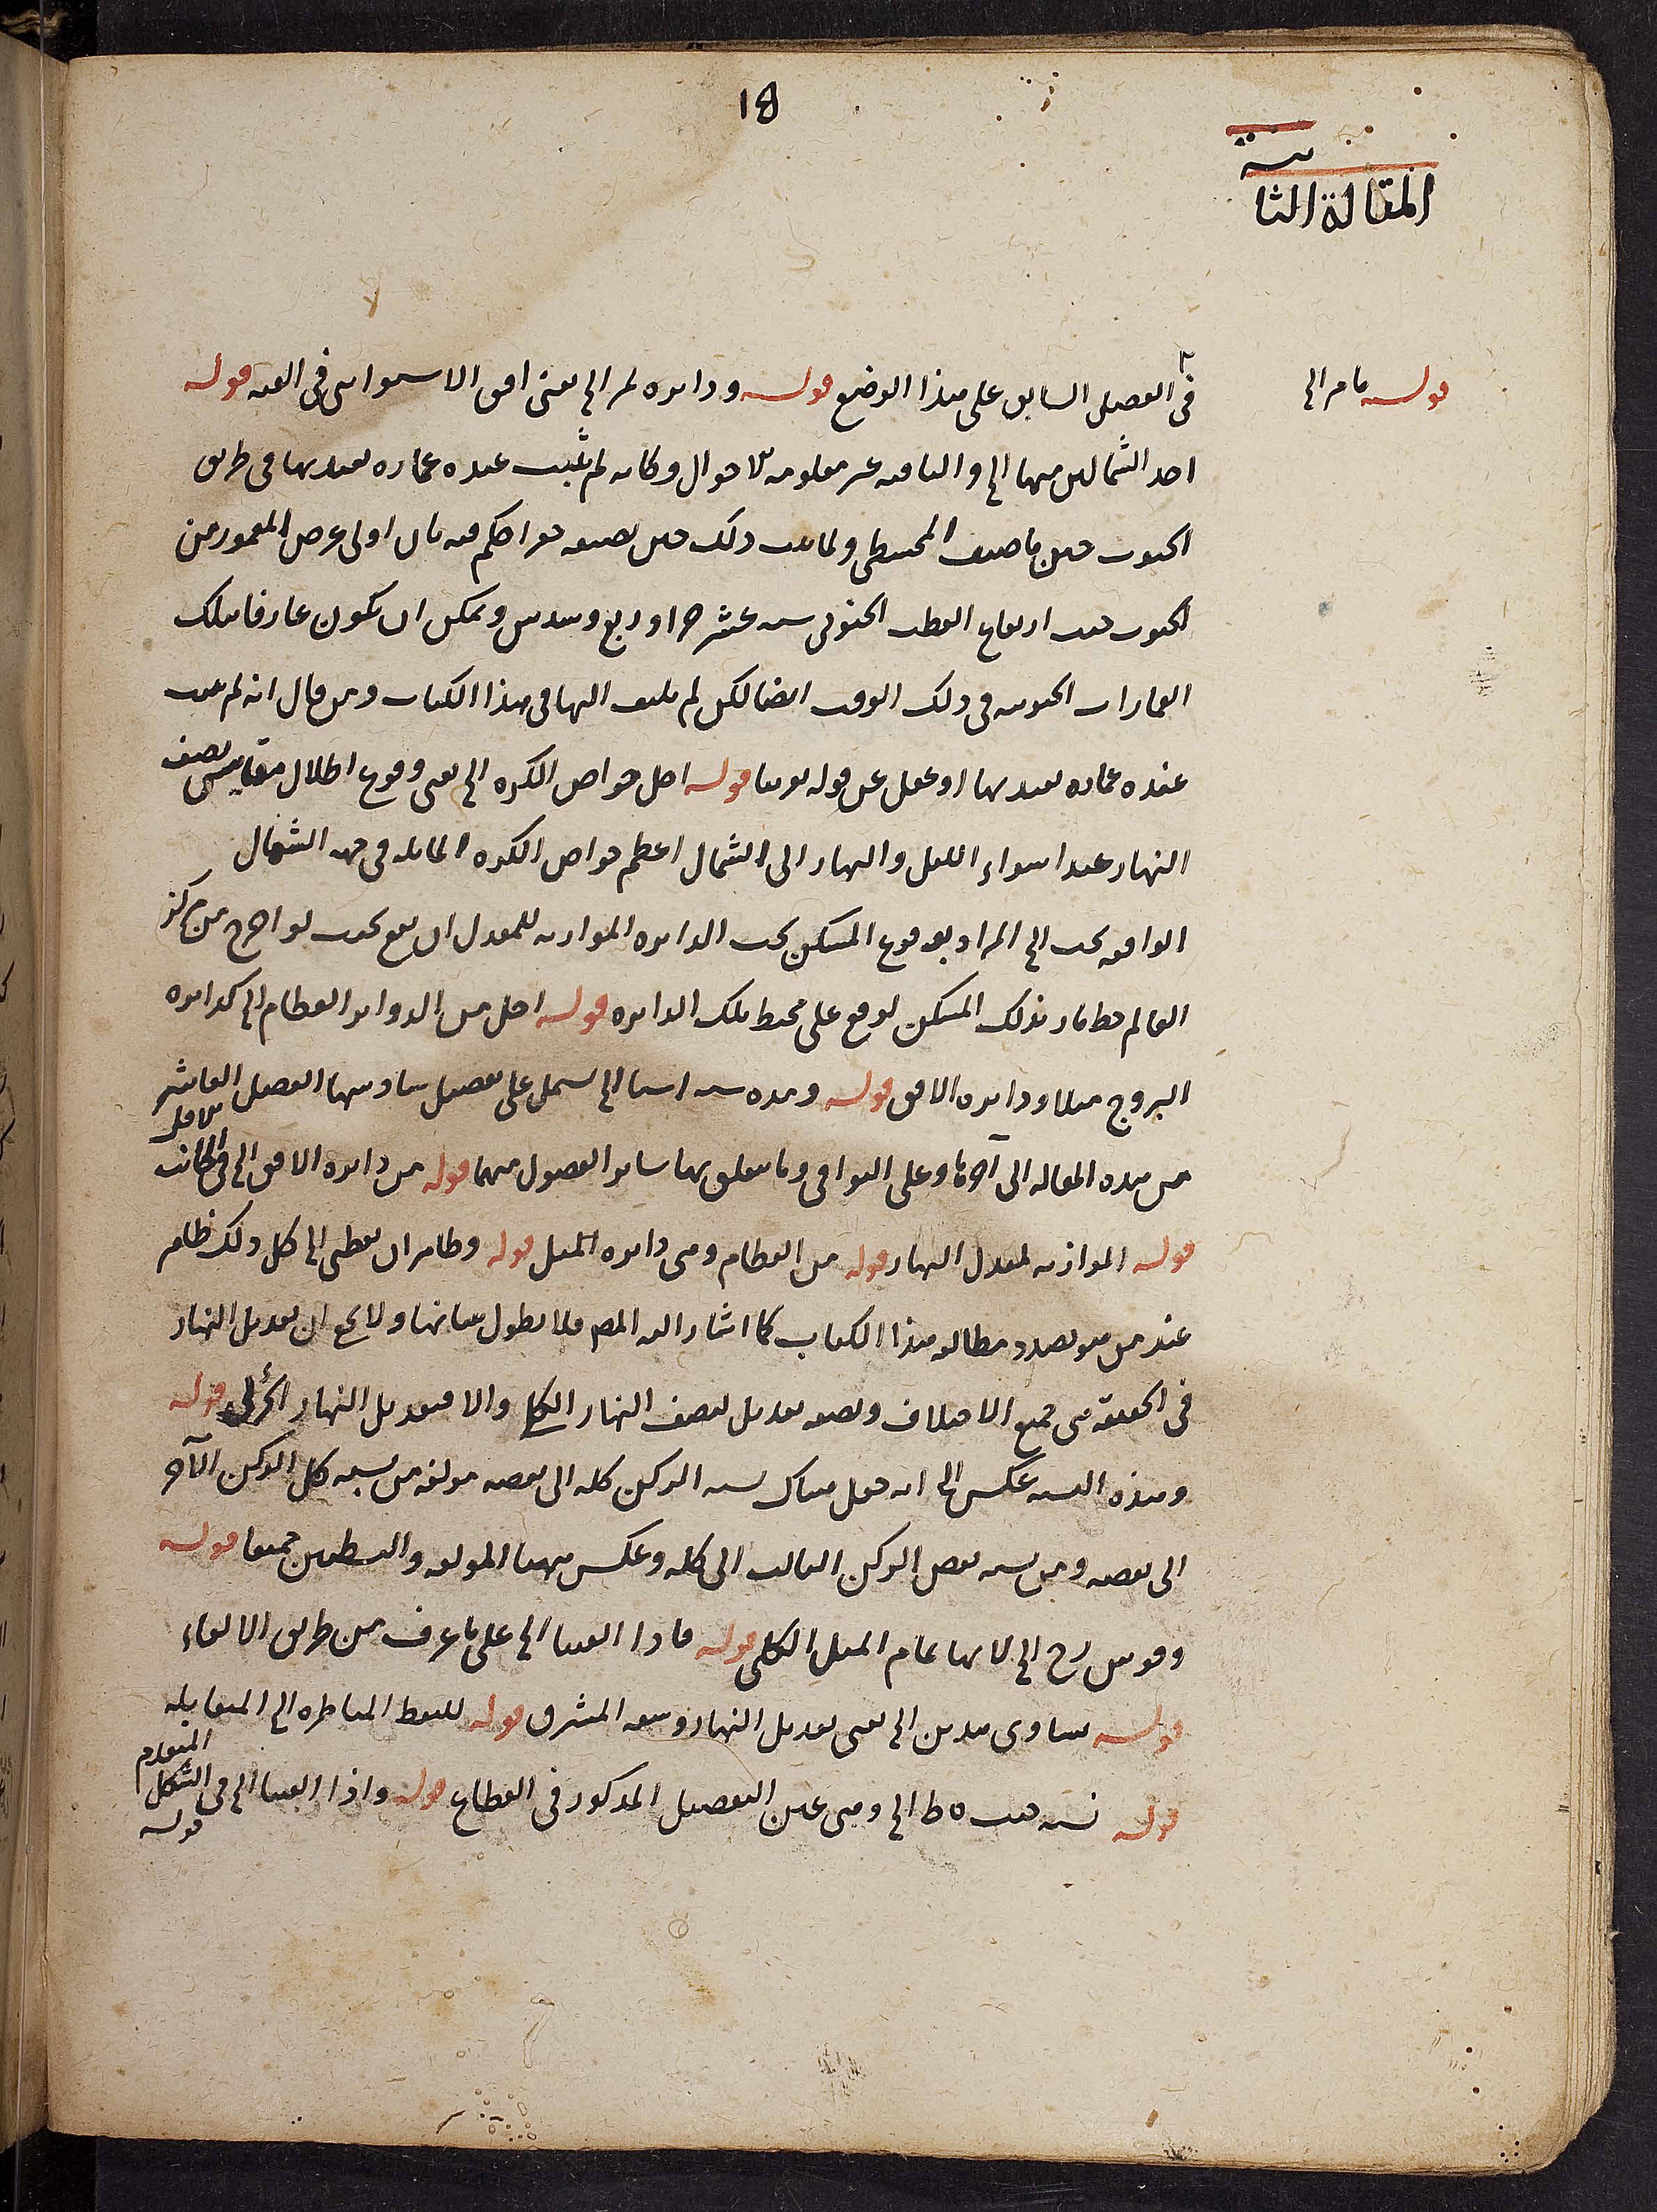 18
المقالة الثانية
قوله ما مر الخ
في الفصل السابق على هذا الوضع قوله ودائرة لمر الخ يعني افق الاستواء في القبه قوله
احد الشماليين منهما الخ والباقيه غير معلومه الاحوال وكانه لم يثبت عنده عماره يعتد بها في طرف
الجنوب حين ما صنف المجسطي ولما ثبت ذلك حين تصنيف جغرافيا حكم فيه بان اول عرض المعمور من
الجنوب حيث ارتفاع القطب الجنوبي سته عشر جزءا وربع وسدس ويمكن ان يكون عارفا بتلك
العمارات الجنوبيه في ذلك الوقت ايضا لكن لم يلتفت اليها في هذا الكتاب ومن قال انه لم يثبت
عنده عماره يعتد بها او غفل عن قوله قوله اجل خواص الكره الخ يعني وقوع اظلال مقاييس نصف
النهار عند استواء الليل والنهار الى الشمال اعظم خواص الكره المائله في جهه الشمال
الواقعه تحت الخ المراد بوقوع المسكن تحت الدائره الموازيه للمعدل ان يقع بحيث لو اخرج من مركز
العالم خط مار بذلك المسكن لوقع على محيط تلك الدائره قوله اجل من الدوائر العظام الخ كدائره
البروج مثلا ودائره الافق قوله وهذه سته اشيا الخ يشتمل على تفصيل سادسها الفصل العاشر
من هذه المقاله الى آخرها وعلى البواقي وما يتعلق بها سائر الفصول منها قوله من دائره الافق الخ في الجانب الاقل
قوله الموازيه لمعدل النهار قوله من العظام وهي دائره الميل قوله وظاهر ان نقطتي الخ كل ذلك ظاهر
عند من هو بصدد مطالعه هذا الكتاب كما اشار اليه المص فلا نطول ببيانها ولا يخ ان تعديل النهار
في الحقيقه هي جميع الاختلاف ونصفه تعديل لنصف النهار الكلي والا فتعديل النهار الجزئي قوله
وهذه النسبه عكس الخ انه جعل هناك نسبه الركن كله الى بعضه مولفه من نسبه كل الركن الآخر
الى بعضه ومن نسبه بعض الركن الثالث الى كله وعكس ههنا المولفه والبسيطين جميعا قوله
وقوس رح الخ لانها تمام الميل الكلي قوله فاذا القينا الخ على ما عرف من طريق الالقاء
قوله تساوي هذين الخ يعني تعديل النهار وسعه المشرق قوله للنقط المناظره الخ المتقابله
قوله نسبه جيب ه ط الخ وهي عين التفصيل المذكور في القطاع قوله واذا القينا الخ في الشكل المتقدم
قوله